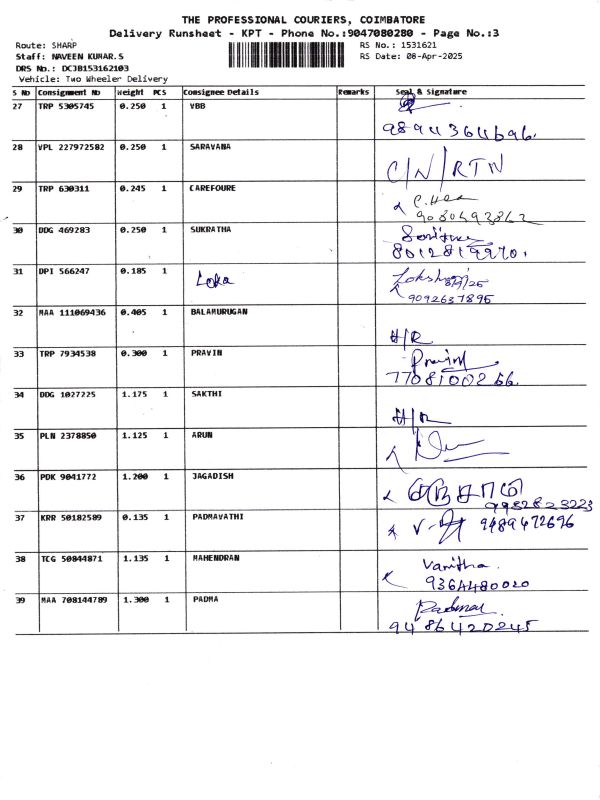 THE PROFESSIONAL COURIERS, COIMBATORE
Delivery Runsheet - KPT - Phone No.:9047080280 - Page No.:3
Route: SHARP
Staff: NAVEEN KUMAR.S
DRS No.: DCJB153162103
Vehicle: Two Wheeler Delivery
RS No.: 1531621
RS Date: 08-Apr-2025
S No Consignment No Weight PCS Consignee Details Remarks Seal & Signature
27 TRP 5305745 0.250 1 VBB
28 VPL 227972582 0.250 1 SARAVANA C/N/RTN
29 TRP 630311 0.245 1 CAREFOURE
30 DDG 469283 0.250 1 SUKRATHA
8012819970.
31 DPI 566247 0.185 1 Loka
9092637895
32 MAA 111069436 0.405 1 BALAMURUGAN H/R
33 TRP 7934538 0.300 1 PRAVIN Pravin
7708100266.
34 DDG 1027225 1.175 1 SAKTHI H/R
35 PLN 2378850 1.125 1 ARUN
36 PDK 9041772 1.200 1 JAGADISH
37 KRR 50182589 0.135 1 PADMAVATHI 9489472696
38 TCG 50844871 1.135 1 MAHENDRAN Vanitha.
9364480020
39 MAA 708144789 1.300 1 PADMA
9486420245